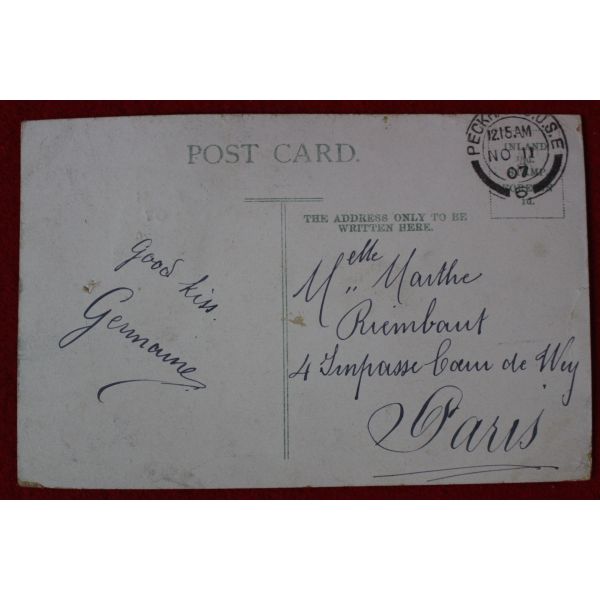 POST CARD.
PECKHAM S.O.S.E
12.15 AM
NO 11
07
6
INLAND
STAMP
FOREIGN
1d.
THE ADDRESS ONLY TO BE
WRITTEN HERE.
Good kiss.
Germaine
Melle Marthe
Riembaut
4 Impasse Cœur de Vey
Paris